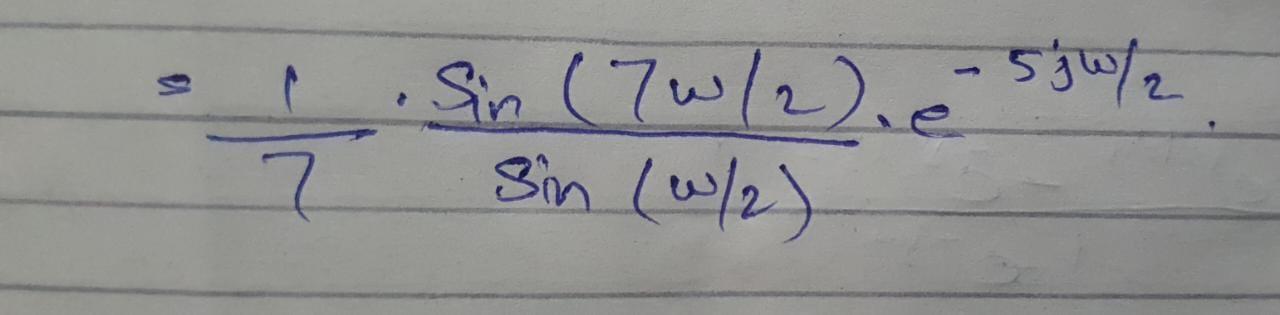 = 1/7 . Sin (7w/2) / Sin (w/2) . e^{-5jw/2} .